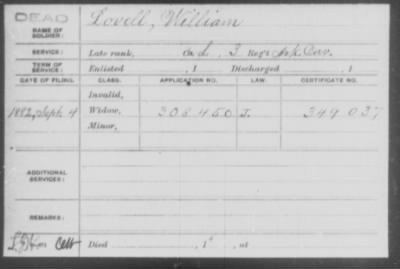 DEAD
NAME OF SOLDIER: Lovell, William
SERVICE: Late rank, Co. L, 3 Reg't Cav.
TERM OF SERVICE: Enlisted , 1 Discharged , 1
DATE OF FILING. CLASS. APPLICATION NO. LAW. CERTIFICATE NO.
Invalid,
1882, Sept. 4 Widow, 308.450 J. 349.037
Minor,
ADDITIONAL SERVICES:
REMARKS:
Died , 1 , at